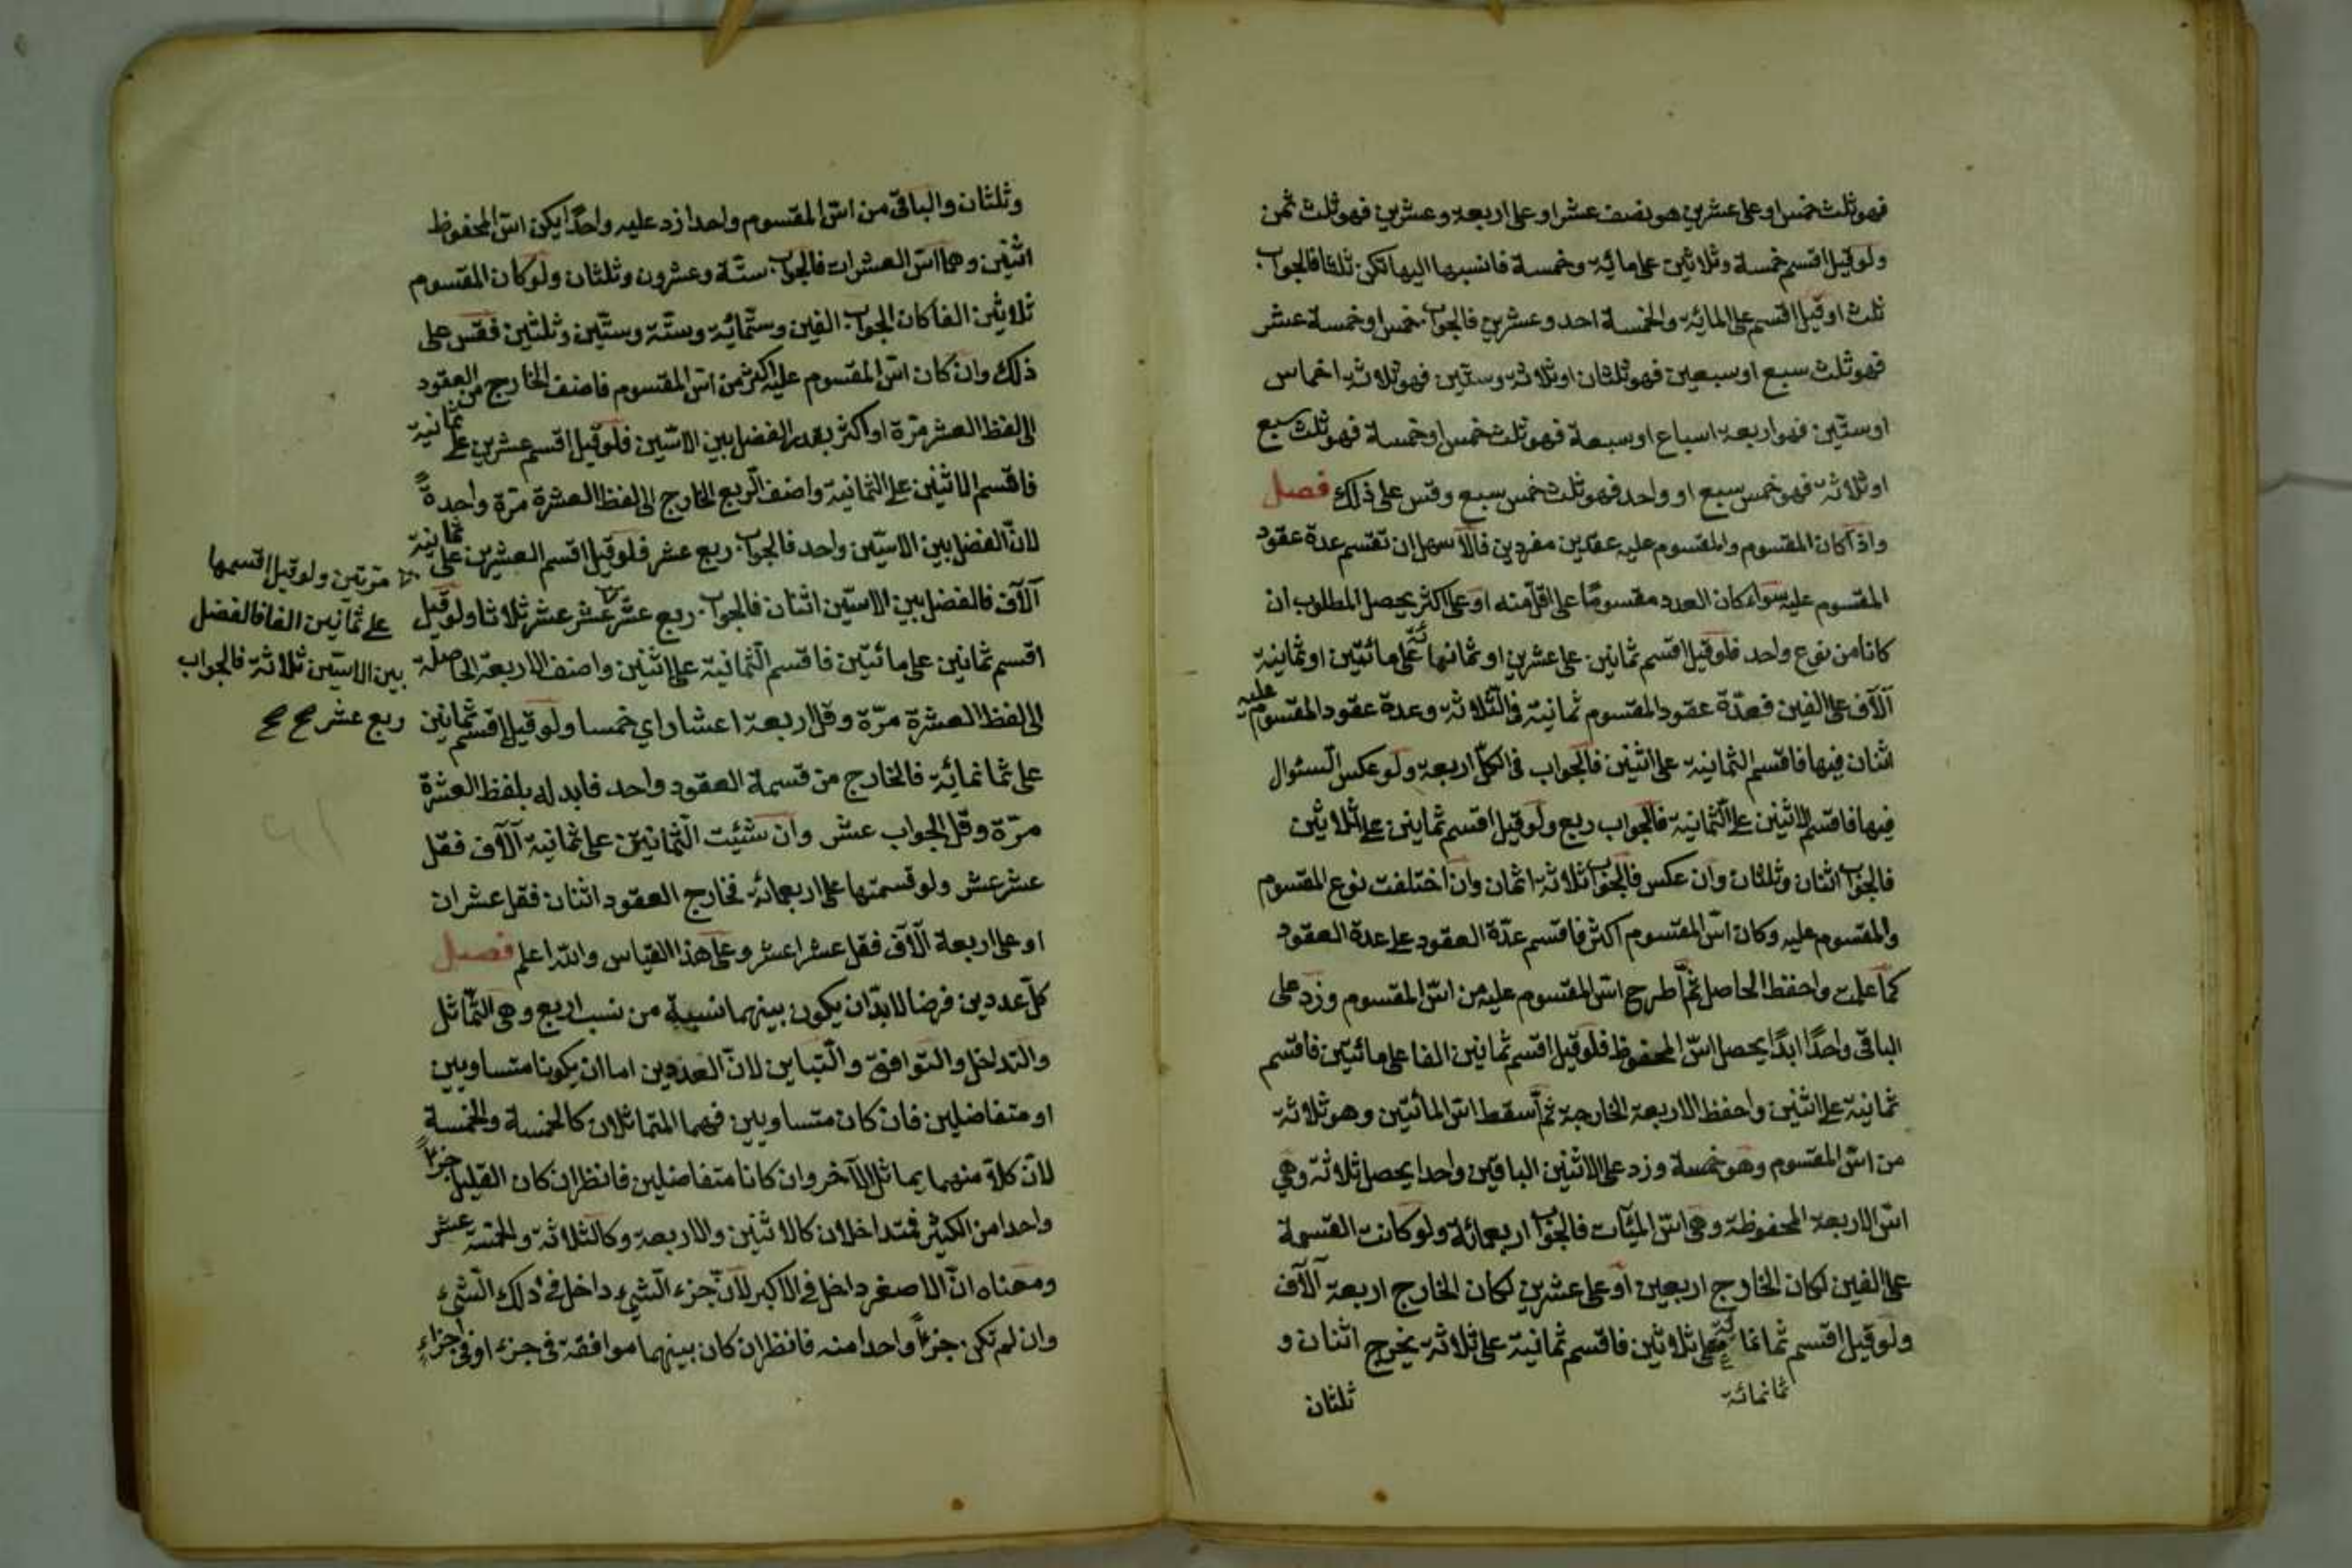 فهو ثلث خمس او على عشرين هو نصف عشر او على اربعة وعشرين فهو ثلث ثمن
ولو قيل اقسم خمسة وثلاثين على مائة وخمسة فانسبها اليها تكن ثلثا فالجواب
ثلث او قيل اقسم على المائة والخمسة احد وعشرين فالجواب خمس او خمسة عشر
فهو ثلث سبع او سبعين فهو ثلثان او ثلاثة وستين فهو ثلاثة اخماس
او ستين فهو اربعة اسباع او سبعة فهو ثلث خمس او خمسة فهو ثلث سبع
او ثلاثة فهو خمس سبع او واحد فهو ثلث خمس سبع وقس على ذلك فصل
واذا كان المقسوم والمقسوم عليه عقدين مفردين فالاسهل ان تقسم عدة عقود
المقسوم عليه سواء كان العدد مقسومًا على اقل منه او على اكثر يحصل المطلوب ان
كانا من نوع واحد فلو قيل اقسم ثمانين على عشرين او ثمانمائة على مائتين او ثمانية
آلاف على الفين فعدّة عقود المقسوم ثمانية في الثلاثة وعدة عقود المقسوم عليه
اثنان فيها فاقسم الثمانية على اثنين فالجواب في الكل اربعة ولو عكس السئوال
فيها فاقسم الاثنين على الثمانية فالجواب ربع ولو قيل اقسم ثمانين على ثلاثين
فالجواب اثنان وثلثان وان عكس فالجواب ثلاثة اثمان وان اختلفت نوع المقسوم
والمقسوم عليه وكان اسّ المقسوم اكثر فاقسم عدّة العقود على عدة العقود
كما علمت واحفظ الحاصل ثم اطرح اسّ المقسوم عليه من اسّ المقسوم وزد على
الباقى واحدًا ابدًا يحصل اسّ المحفوظ فلو قيل اقسم ثمانين الفا على مائتين فاقسم
ثمانية على اثنين واحفظ الاربعة الخارجة ثم اسقط اسّ المائتين وهو ثلاثة
من اسّ المقسوم وهو خمسة وزد على الاثنين الباقين واحدا يحصل ثلاثة وهي
اسّ الاربعة المحفوظة وهى اسّ الميئات فالجواب اربعمائة ولو كانت القسمة
على الفين لكان الخارج اربعين او على عشرين لكان الخارج اربعة آلاف
ولو قيل اقسم ثمانمائة على ثلاثين فاقسم ثمانية على ثلاثة يخرج اثنان و
ثمانمائة
ثلثان
وثلثان والباقى من اسّ المقسوم واحدا زد عليه واحدًا يكن اسّ المحفوظ
اثنين وهما اسّ العشرات فالجواب ستّة وعشرون وثلثان ولو كان المقسوم
ثلاثين الفا كان الجواب الفين وستمائة وستّة وستّين وثلثين فقس على
ذلك وان كان اسّ المقسوم عليه اكثر من اسّ المقسوم فاضف الخارج من العقود
الى لفظ العشر مرّة او اكثر بقدر الفضل بين الاسّين فلو قيل اقسم عشرين على ثمانية
فاقسم الاثنين على الثمانية واضف الربع الخارج الى لفظ العشرة مرّة واحدةً
لانّ الفضل بين الاسّين واحد فالجواب ربع عشر فلو قيل اقسم العشرين على ثمانية
آلاف فالفضل بين الاسّين اثنان فالجواب ربع عشر عشر عشر ثلاثا ولو قيل
اقسم ثمانين على مائتين فاقسم الثمانية على اثنين واضف الاربعة الحاصلة
الى لفظ العشرة مرّة وقل اربعة اعشار اي خمسا ولو قيل اقسم ثمانين
على ثمانمائة فالخارج من قسمة العقود واحد فابدله بلفظ العشرة
مرّة وقل الجواب عشر وان شئيت الثمانين على ثمانية آلاف فقل
عشر عشر ولو قسمتها على اربعمائة فخارج العقود اثنان فقل عشران
او على اربعة آلاف فقل عشرا عشر وعلى هذا القياس والله اعلم فصل
كلّ عددين فرضا لا بدّ ان يكون بينهما نسبة من نسب اربع وهى التماثل
والتداخل والتوافق والتباين لانّ العددين اما ان يكونا متساويين
او متفاضلين فان كان متساويين فهما المتماثلان كالخمسة والخمسة
لانّ كلا منهما يماثل الآخر وان كانا متفاضلين فانظر ان كان القليل جزءًا
واحدا من الكثير فمتداخلان كالاثنين والاربعة وكالثلاثة والخمسة عشر
ومعناه انّ الاصغر داخل في الاكبر لانّ جزء الشيء داخل في ذلك الشيء
وان لم تكن جزءًا واحدا منه فانظر ان كان بينهما موافقة في جزء او في اجزاءٍ
مرّتين ولو قيل اقسمها
على ثمانين الفا فالفضل
بين الاسّين ثلاثة فالجواب
ربع عشر صح صح